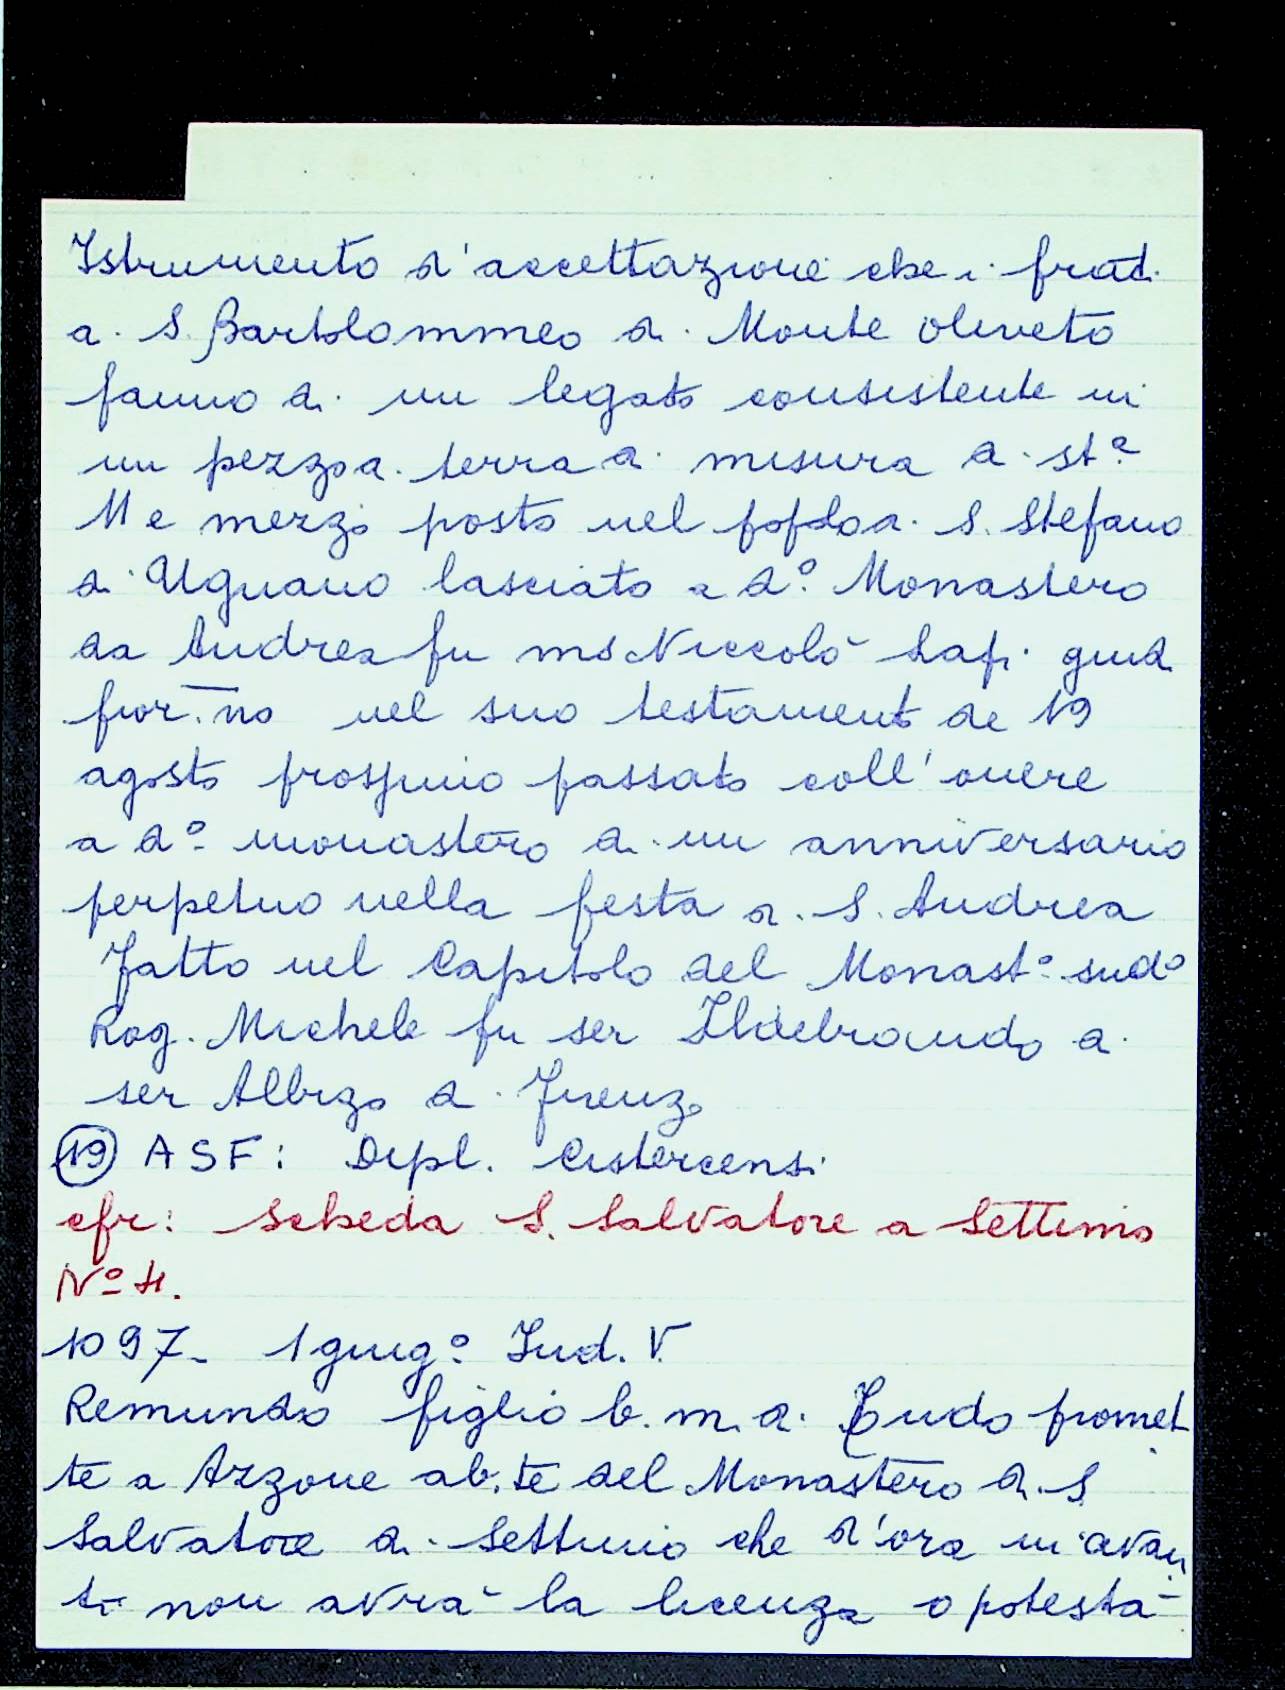 Istrumento d'accettazione che i frati
di S. Bartolommeo di Monte Oliveto
fanno di un legato consistente in
un pezzo di terra di misura di st.ª
11 e mezzo posto nel popolo di S. Stefano
di Ugnano lasciato a d.º Monastero
da Andrea fu ms Niccolò
fior.no nel suo testamento de 19
agosto prossimo passato coll'onere
a d.º monastero di un anniversario
perpetuo nella festa di S. Andrea
Fatto nel Capitolo del Monast.º sud.º
Rog. Michele fu ser Ildebrando di
ser Albizo di Firenze
19 ASF: Dipl. Cistercensi
cfr: scheda S. Salvatore a Settimo
Nº 4.
1097- 1 giug.º Ind. V.
Remundo figlio b. m. di promet
te a Azzone ab.te del Monastero di S.
Salvatore di Settimo che d'ora in avan
ti non avrà la licenza o potestà